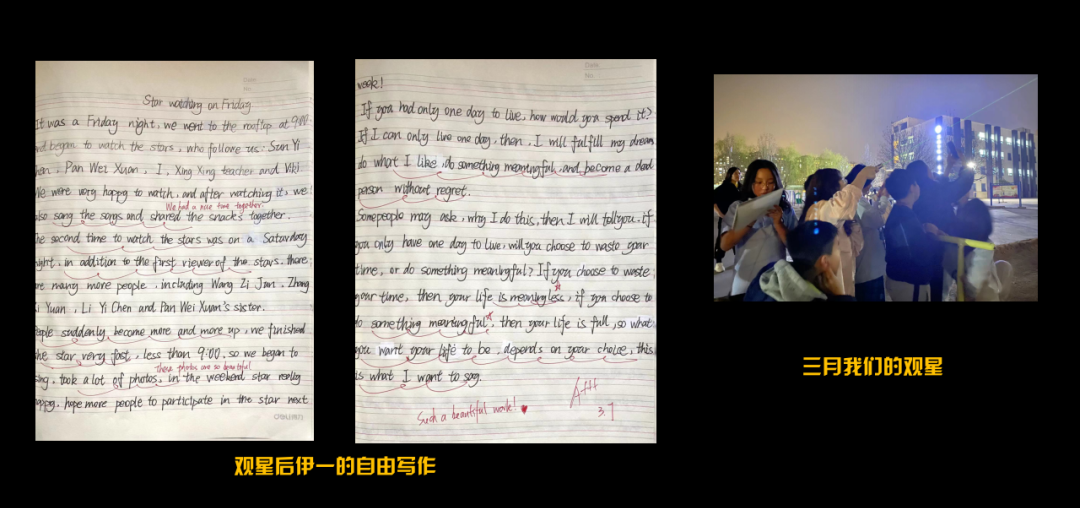 Date
No
Star watching on Friday
It was a Friday night, we went to the rooftop at 9:00
and began to watch the stars, who follow us: Sun Yi
hen, Pan Wei Xuan, I, Xing Xing teacher and Viki.
We were very happy to watch, and after watching it, we
We had a nice time together.
also sang the songs and shared the snacks together.
he second time to watch the stars was on a Saturday
night, in addition to the first viewer of the stars, there
are many more people, including Wang Zi Jan, Zhang
i Yuan, Li Yi Chen and Pan Wei Xuan's sister.
people suddenly become more and more up, we finished
the star very fast, less than 9:00, so we began to
These photos are so beautiful.
sing, took a lot of photos, in the weekend star really
happy, hope more people to participate in the star next
Date
No
week!
If you had only one day to live, how would you spend it?
If I can only live one day, then, I will fulfill my dream,
do what I like, do something meaningful, and become a dead
person without regret.
Somepeople may ask, why I do this, then I will tell you. If
you only have one day to live, will you choose to waste your
time, or do something meaningful? If you choose to waste
your time, then your life is meaningless, if you choose to
do something meaningful, then your life is full, so what
you want your life to be, depends on your choice, this
is what I want to say.
Such a beautiful work!
A+++
3.7
观星后伊一的自由写作
三月我们的观星